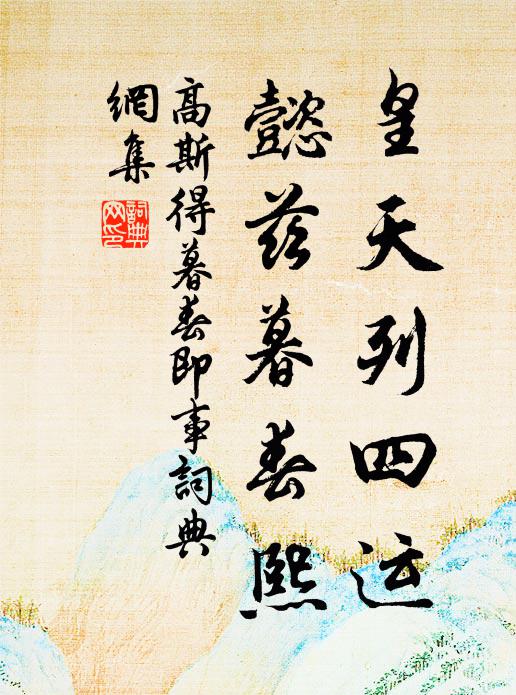 皇天列四运
懿兹暮春熙
高斯得暮春即事詞典
網集
詞典
网印